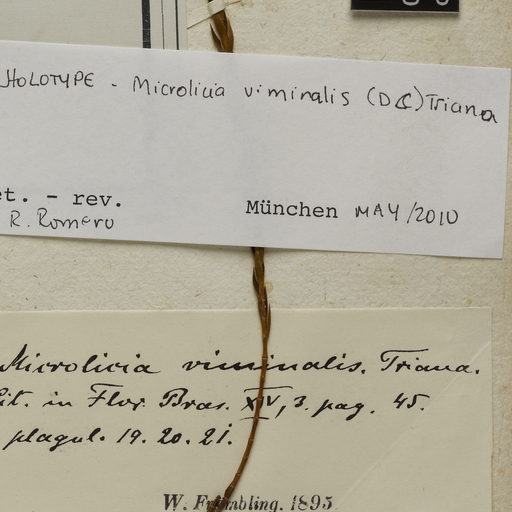 HOLOTYPE - Microlicia viminalis (DC) Triana
et. - rev.
R. Romero
München MAY/2010
Microlicia viminalis. Triana.
Cit. in Flor. Bras. XIV, 3. pag. 45.
plagul. 19. 20. 21.
W. Frömbling. 1895